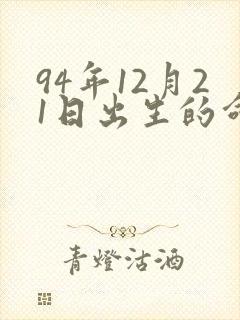 94年12月2
1日出生的命
青燈沽酒